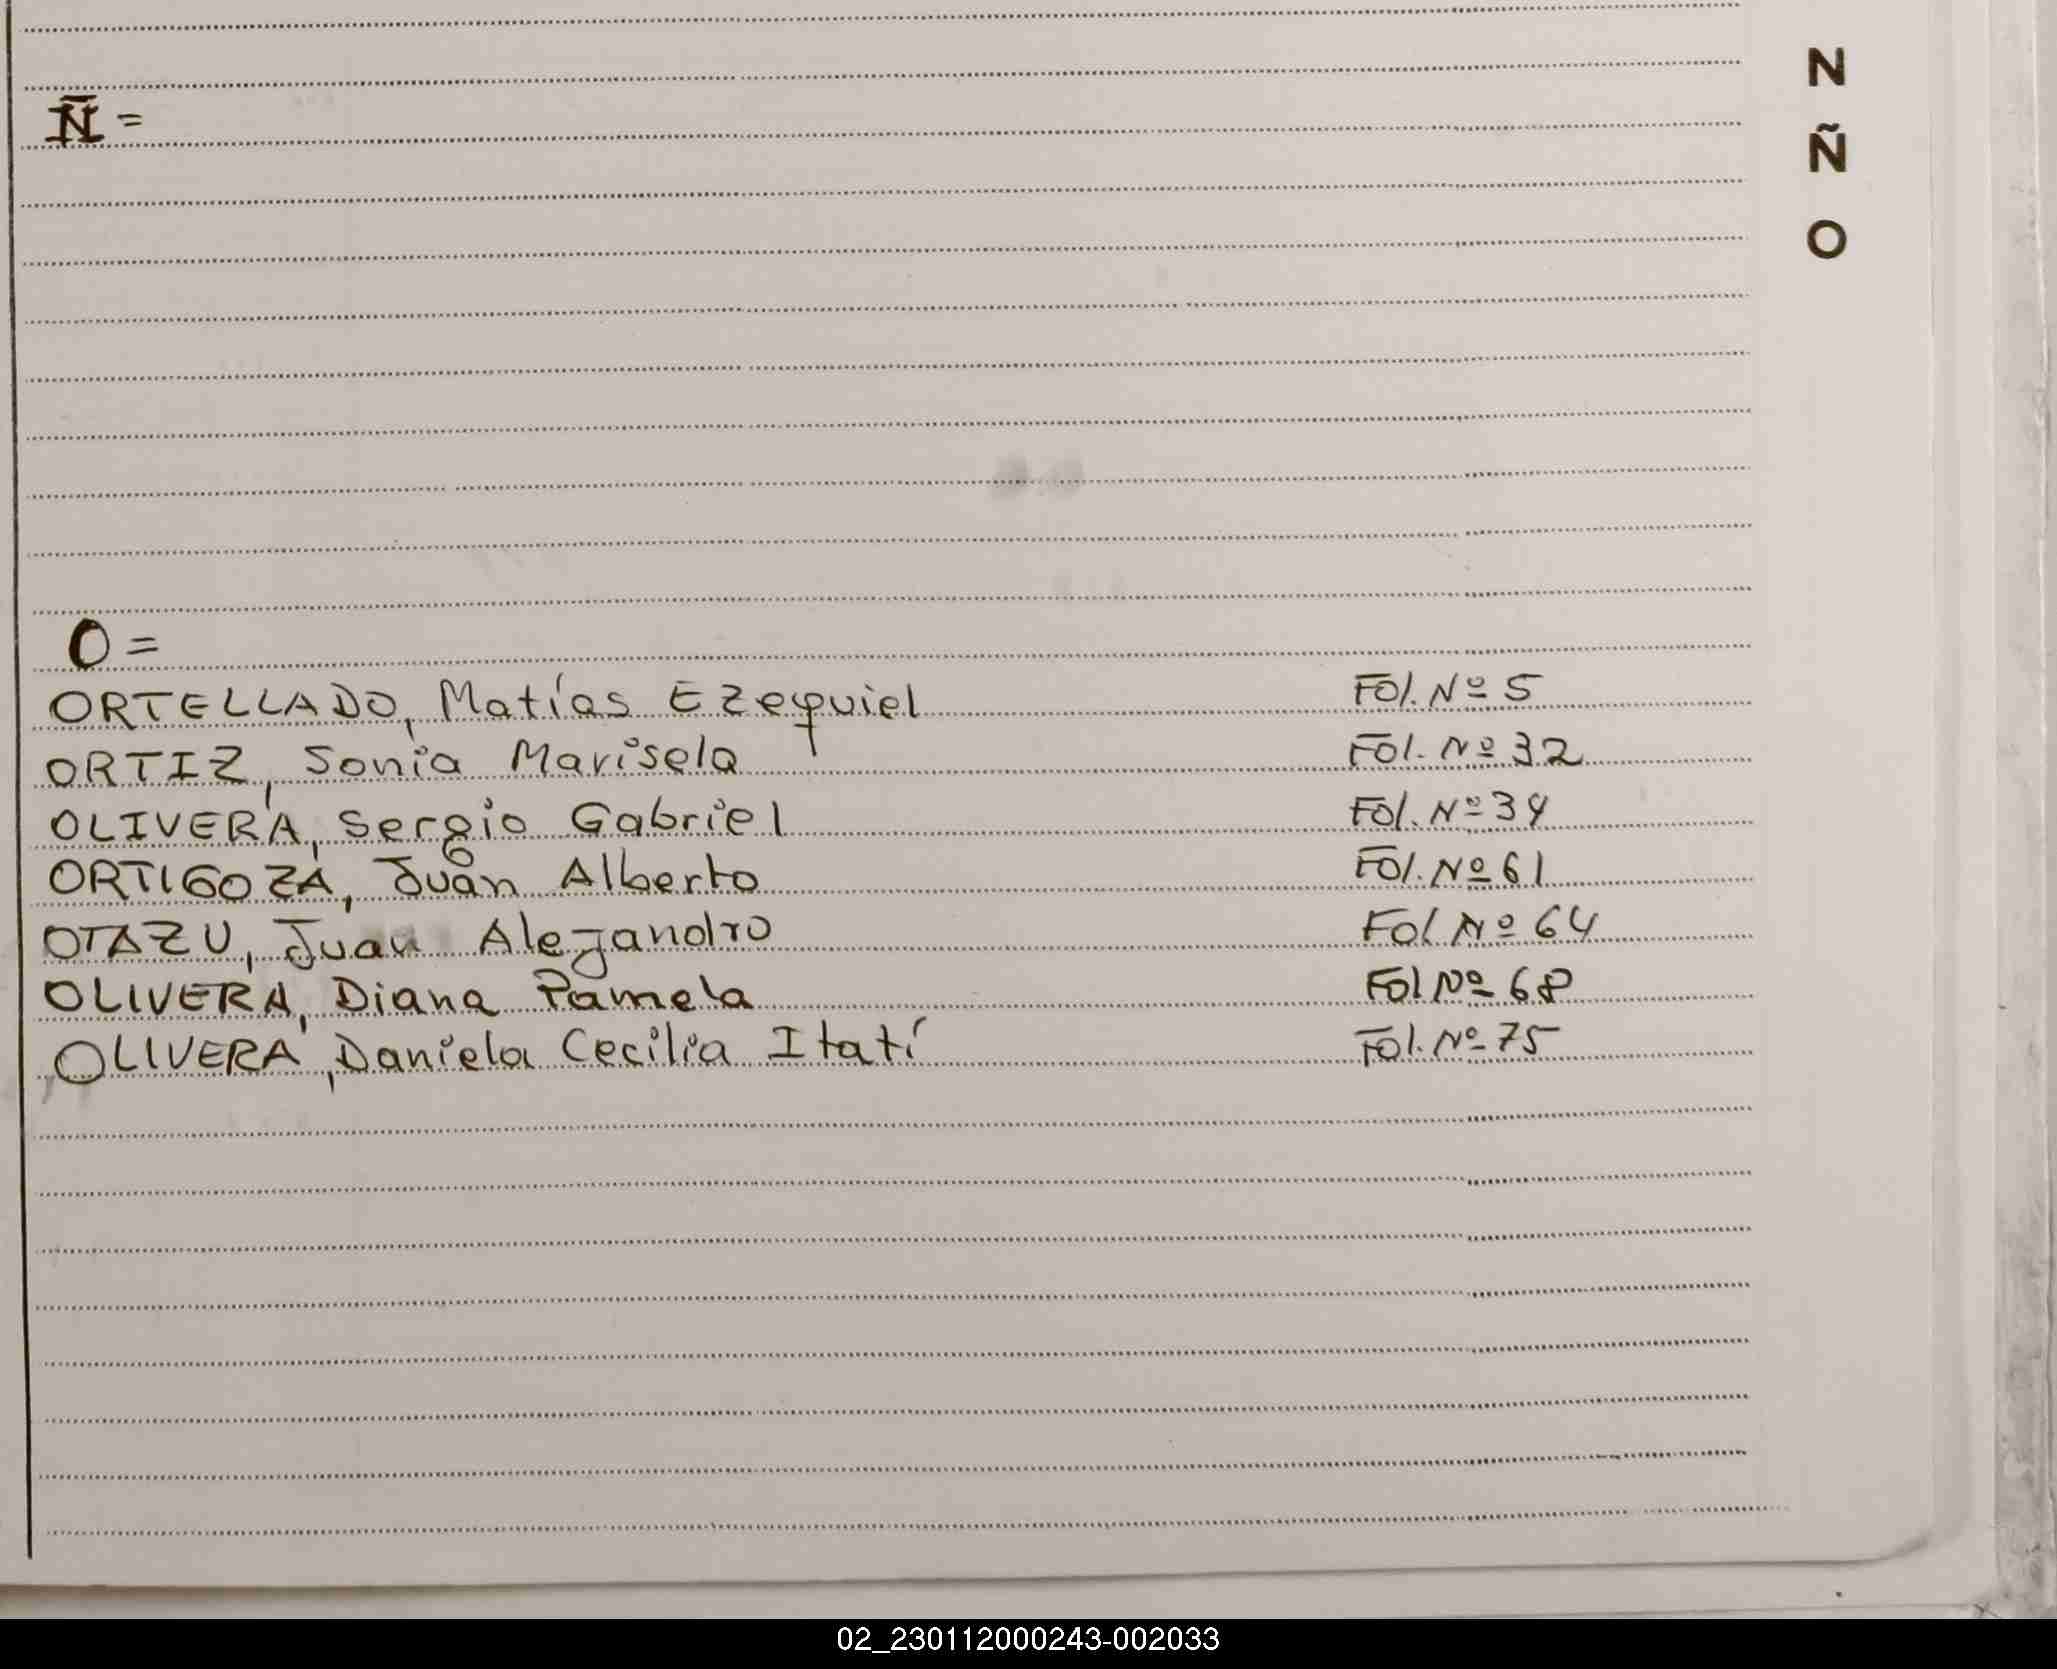 N
Ñ
O
Ñ =
O =
ORTELLADO, Matías Ezequiel Fol. Nº 5
ORTIZ, Sonia Marisela Fol. Nº 32
OLIVERA, Sergio Gabriel Fol. Nº 34
ORTIGOZA, Juan Alberto Fol. Nº 61
OTAZU, Juan Alejandro Fol Nº 64
OLIVERA, Diana Pamela Fol Nº 68
OLIVERA, Daniela Cecilia Itatí Fol. Nº 75
02_230112000243-002033